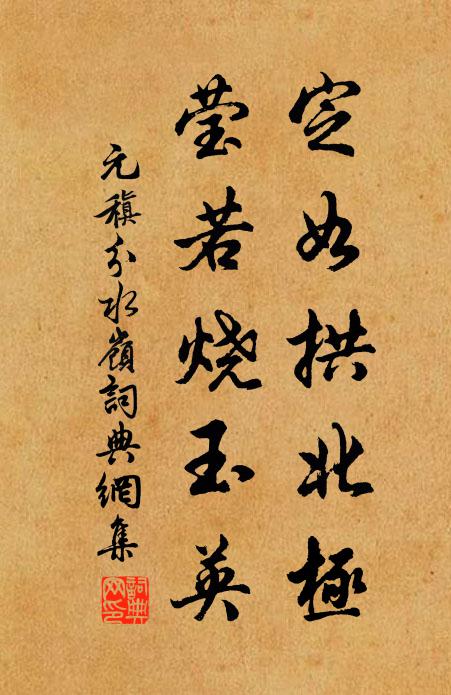 定如拱北極
莹若烧玉英
元稹分水嶺詞典網集
詞典網印